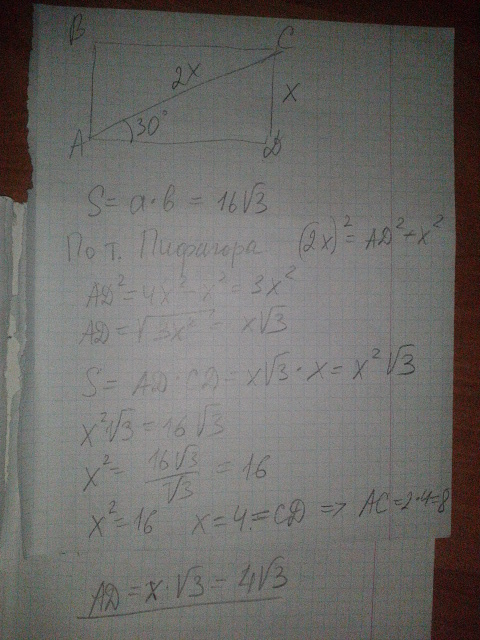 B C
2x x
30°
A D
S = a · b = 16√3
По т. Пифагора (2x)² = AD² + x²
AD² = 4x² - x² = 3x²
AD = √3x² = x√3
S = AD · CD = x√3 · x = x²√3
x²√3 = 16√3
x² = 16√3/√3 = 16
x² = 16 x = 4 = CD => AC = 2·4 = 8
AD = x · √3 = 4√3